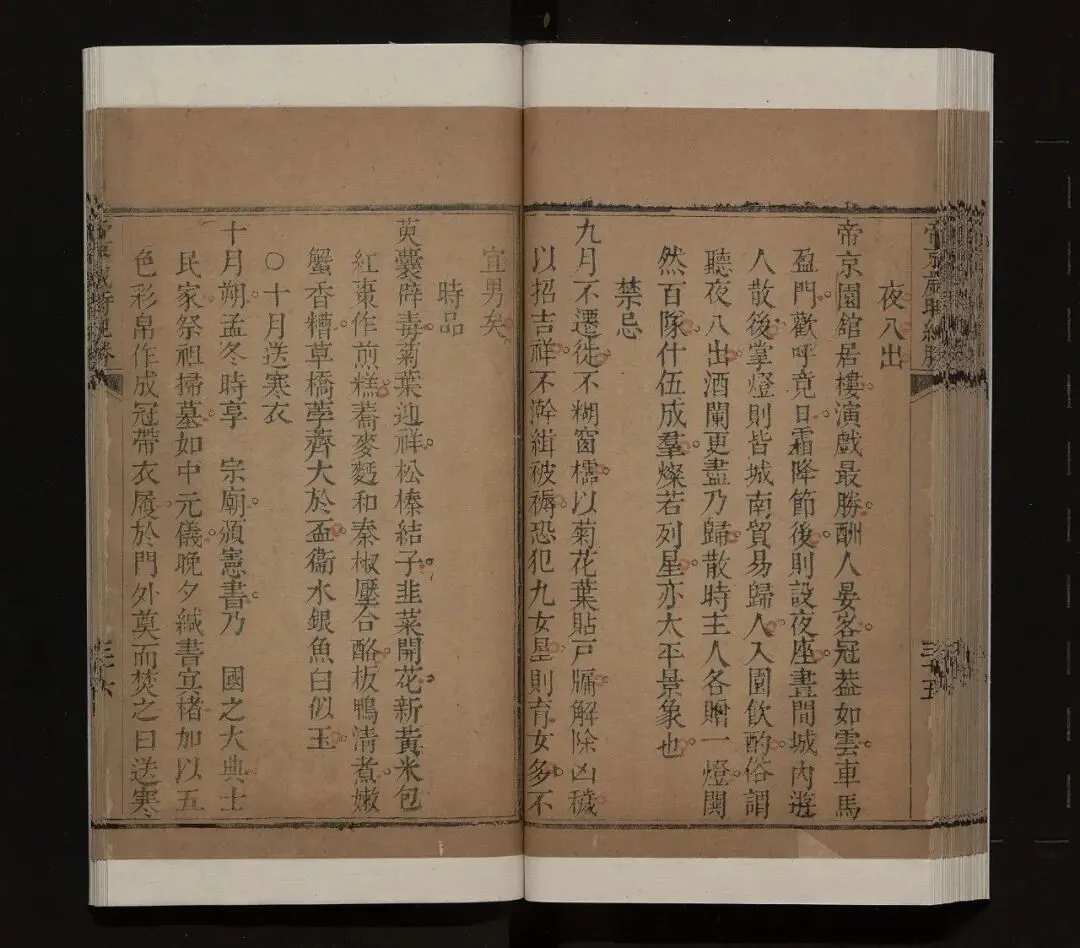 夜八出
帝京園館居樓演戲最勝酬人晏客冠葢如雲車馬
盈門歡呼竟日霜降節後則設夜座晝間城內遊
人散後掌燈則皆城南貿易歸人入園飲酌俗謂
聽夜八出酒闌更盡乃歸散時主人各贈一燈閧
然百隊什伍成羣燦若列星亦太平景象也
禁忌
九月不遷徙不糊窗槅以菊花葉貼戸牖解除凶穢
以招吉祥不澣緝被褥恐犯九女星則育女多不
宜男矣
時品
萸囊辟毒菊葉迎祥松榛結子韭菜開花新黃米包
紅棗作煎糕蕎麥麪和秦椒壓合酪板鴨清煮嫩
蟹香糟草橋荸薺大於盃衞水銀魚白似玉
○十月送寒衣
十月朔孟冬時享 宗廟頒憲書乃 國之大典士
民家祭祖掃墓如中元儀晚夕緘書冥楮加以五
色彩帛作成冠帶衣履於門外奠而焚之曰送寒